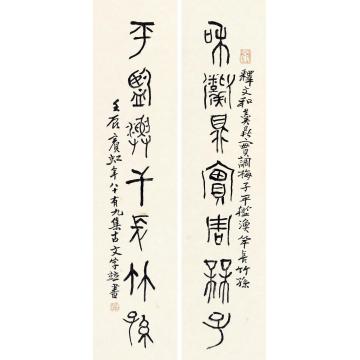 和羹鼎實周楳子
釋文和羹鼎實調梅子平檻漁竿長竹孫
平監漁干長竹孫
壬辰賓虹年八十有九集古文字並書